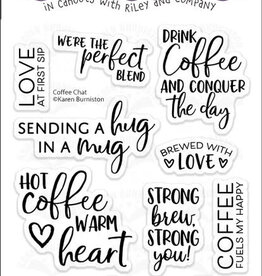 in cahoots with Riley and Company
LOVE
AT FIRST SIP
WE'RE THE
perfect
BLEND
DRINK
Coffee
AND CONQUER
the day
Coffee Chat
©Karen Burniston
SENDING A hug
IN A mug
BREWED WITH
LOVE
HOT
coffee
WARM
heart
STRONG
brew,
STRONG
you!
COFFEE
FUELS MY HAPPY